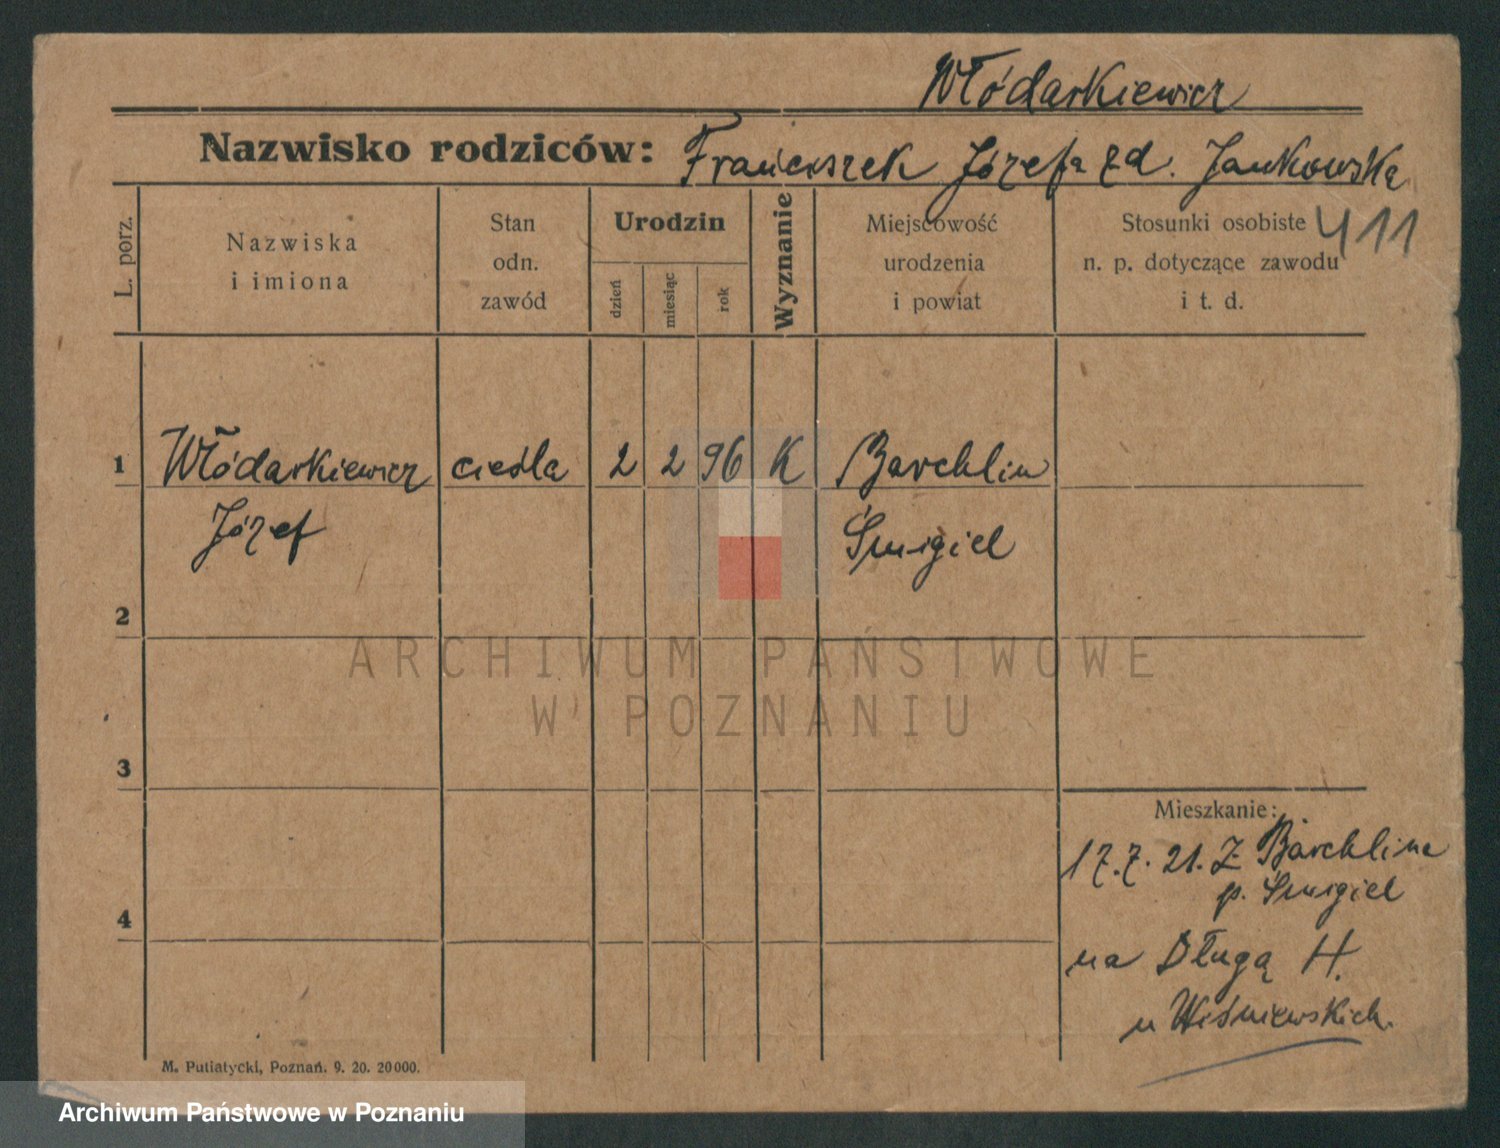 Włódarkiewicz
Nazwisko rodziców: Franciszek Józefa zd. Jankowska
411
L. porz.
Nazwiska
i imiona
Stan
odn.
zawód
Urodzin
dzień
miesiąc
rok
Wyznanie
Miejscowość
urodzenia
i powiat
Stosunki osobiste
n. p. dotyczące zawodu
i t. d.
1 Włódarkiewicz cieśla 2 2 96 K Barchlin
Józef Śmigiel
2
ARCHIWUM PAŃSTWOWE
W POZNANIU
3
Mieszkanie:
17.7.21. Z Barchlina
p. Śmigiel
4
na Długą
u Wiśniewskich.
M. Putiatycki, Poznań. 9. 20. 20000.
Archiwum Państwowe w Poznaniu